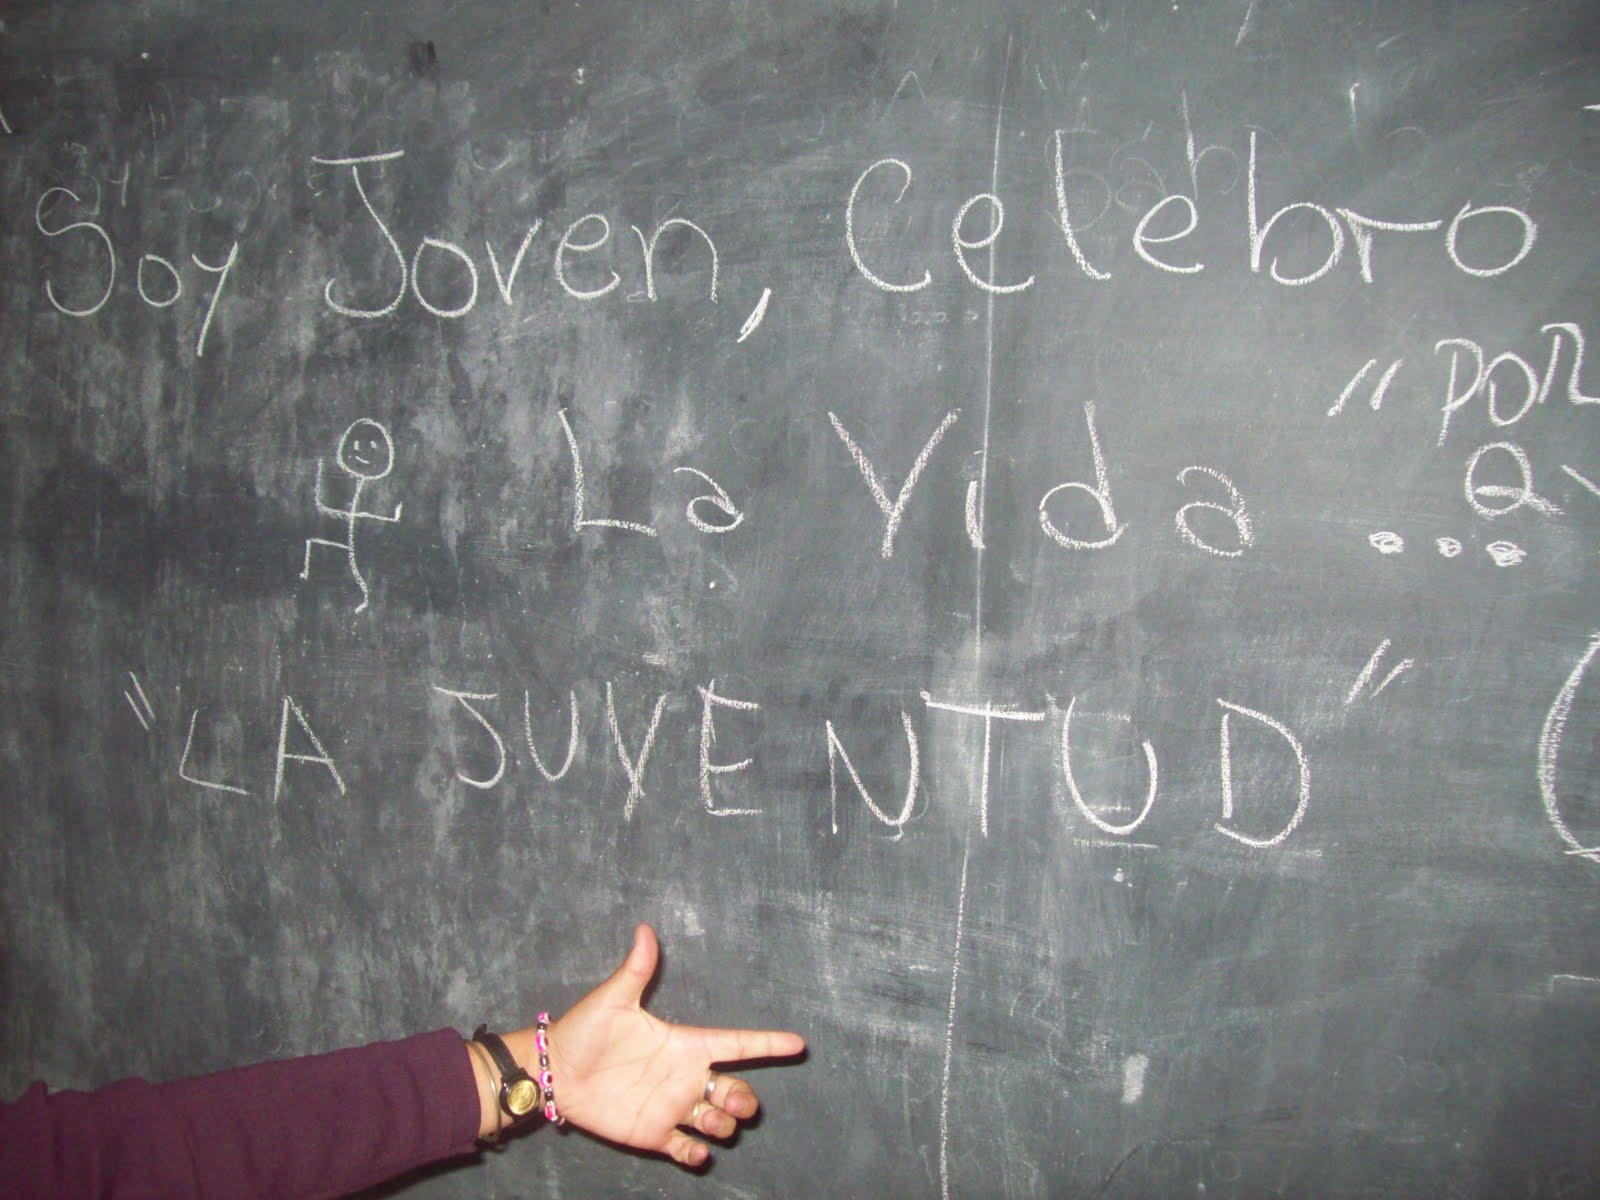 Soy Joven, Celebro
"POR
La Vida ...
"LA JUVENTUD"